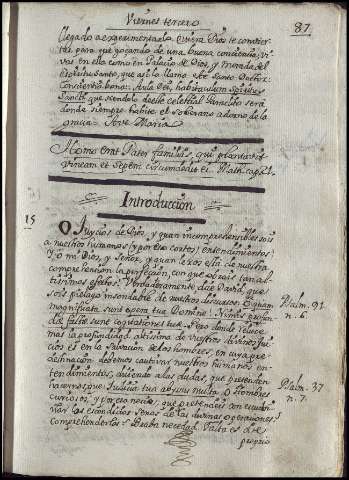 Viernes tercero
87
llegado a experimentarlo. Quiera Dios te convier-
tas para que gozando de una buena conciencia, vi-
vas en ella como en Palacio de Dios, y morada del
Espiritu Santo, que así la llama este Santo Doctor:
Conscientia bona: Aula Dei, habitaculum Spiritus
Sancti, que siendolo desde celestial Paracleto será
donde siempre habite el soberano adorno de la
gracia. Ave Maria
Homo erat Pater familias, qui plantavit
vineam et sepem circumdedit ei. Math. cap.
Introduccion
15
O Juycios de Dios, y quan incomprehensibles sois
a nuestros humanos (y por eso cortos) entendimientos!
y o mi Dios, y Señor, y quan lexos está de nuestra
comprehension la perfeccion, con que obrais tan al-
tisimos efetos! Verdaderamente dice David, que
sois pielago insondable de nuestros discursos. O quam
magnificata sunt opera tua Domine! Nimis profun-
dæ factæ sunt cogitationes tuæ. Pero donde
mas la profundidad altisima de vuestros divinos Jui-
cios es en la salvacion de los hombres, en cuya pre-
destinacion debemos cautivar nuestros humanos en-
tendimientos, diciendo a las dudas, que pretenden
hacernos que Judicia tua abyssus multa. O hombres
curiosos, y por eso necios, que pretendeis con
las escondidas sendas de las divinas operaciones
comprehenderlos! Brava necedad. Falta es de
proprio
Psalm. 91
n. 6.
Psalm. 37
n. 7.